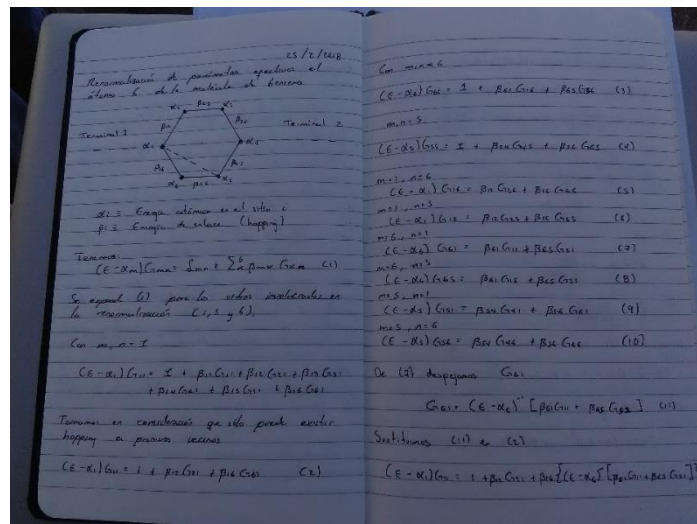 25/2/2018
Renormalización de parámetros efectivos el
átomo 6 de la molécula de benceno
Terminal 1
Terminal 2
αi ≡ Energía atómica en el sitio i
βi ≡ Energía de enlace (hopping)
Tenemos:
(E-αm)Gmn = δmn + Σ βmk Gkn (1)
Se expande (1) para los sitios involucrados en
la renormalización (1, 5 y 6).
Con m,n=1
(E-α1)G11 = 1 + β11G11 + β12G21 + β13G31
+ β14G41 + β15G51 + β16G61
Tomamos en consideración que sólo puede existir
hopping a primeros vecinos
(E-α1)G11 = 1 + β12G21 + β16G61 (2)
Con m,n=6
(E-α6)G66 = 1 + β61G16 + β65G56 (3)
m,n=5
(E-α5)G55 = 1 + β54G45 + β56G65 (4)
m=1, n=6
(E-α1)G16 = β12G26 + β16G66 (5)
m=1, n=5
(E-α1)G15 = β12G25 + β16G65 (6)
m=6, n=1
(E-α6)G61 = β61G11 + β65G51 (7)
m=6, n=5
(E-α6)G65 = β61G15 + β65G55 (8)
m=5, n=1
(E-α5)G51 = β54G41 + β56G61 (9)
m=5, n=6
(E-α5)G56 = β54G46 + β56G66 (10)
De (7) despejamos G61
G61 = (E-α6)⁻¹ [β61G11 + β65G51] (11)
Sustituimos (11) en (2)
(E-α1)G11 = 1 + β12G21 + β16{(E-α6)⁻¹[β61G11+β65G51]}